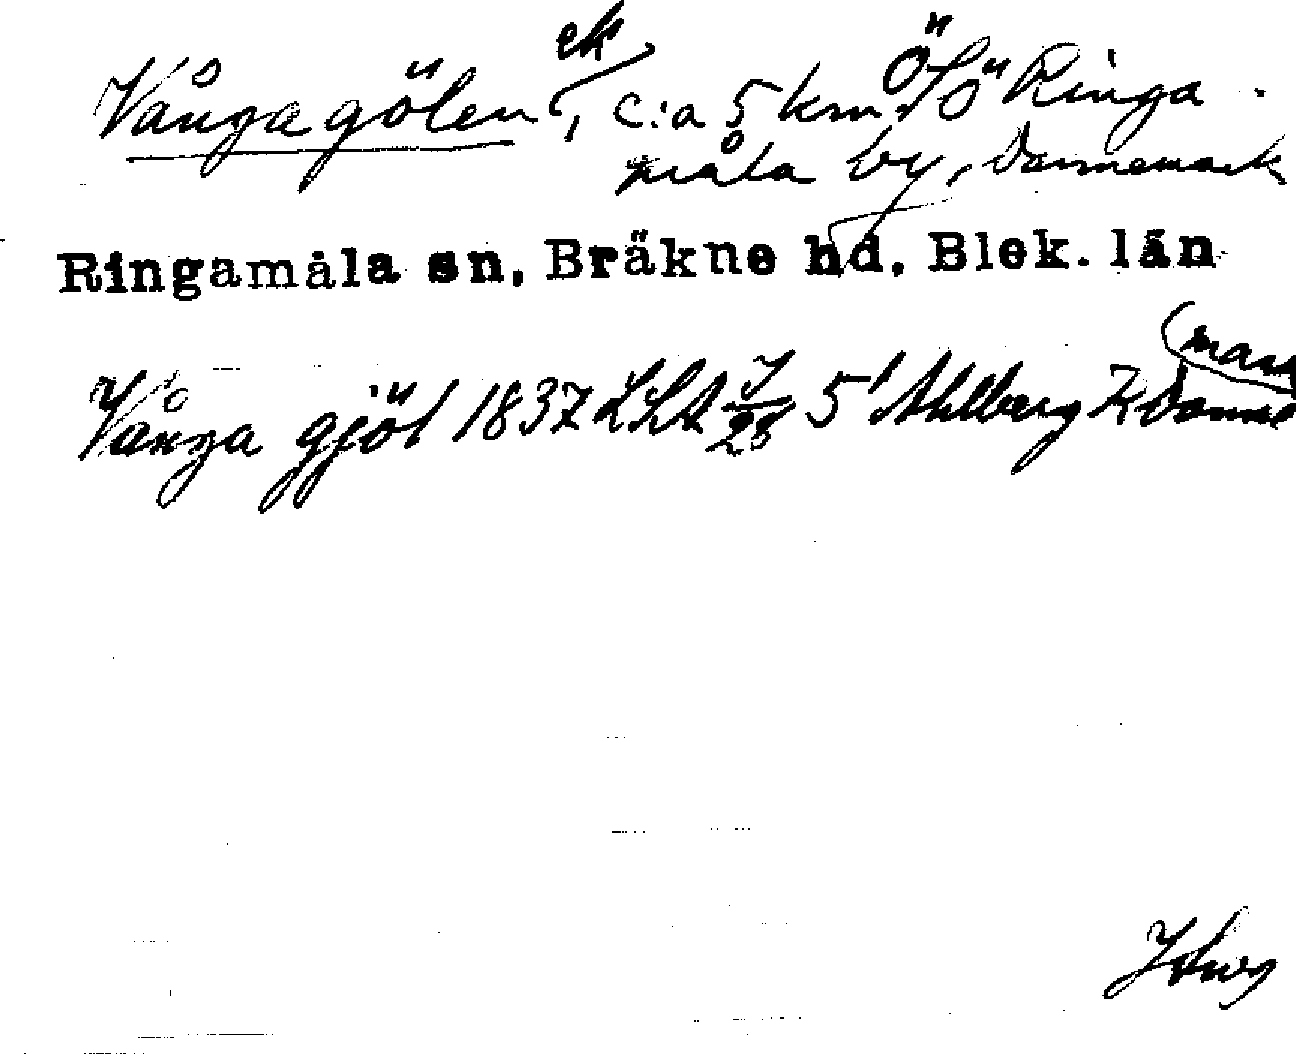 Vånga gölen, ek c:a 5 km ÖSÖ Ringa-
måla by, Dannemark
Ringamåla sn, Bräkne hd. Blek. län
Vånga gjöl 1837 LSA 5 Ahlberg K Danne
(mark